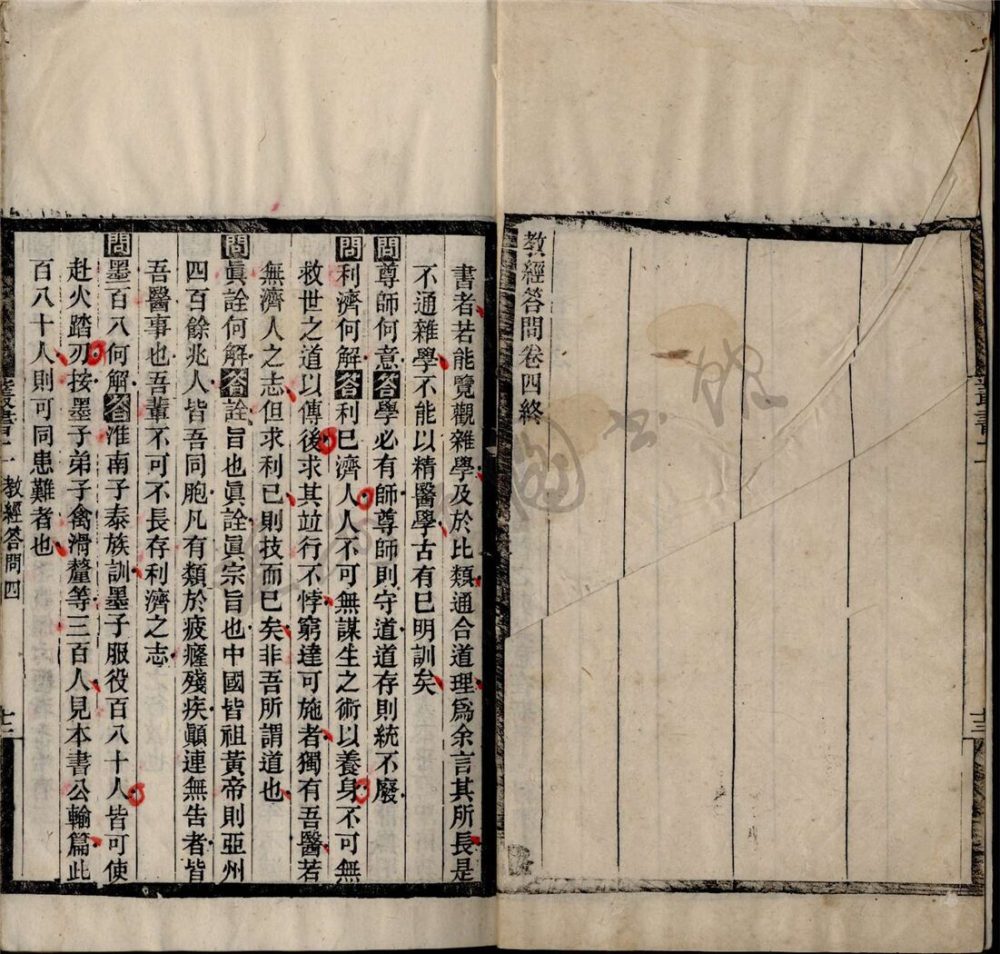 教經答問卷四終
十三
書者若能覽觀雜學及於比類通合道理爲余言其所長是
不通雜學不能以精醫學古有已明訓矣
問尊師何意答學必有師尊師則守道道存則統不廢
問利濟何解答利已濟人人不可無謀生之術以養身不可無
救世之道以傳後求其竝行不悖窮達可施者獨有吾醫若
無濟人之志但求利已則技而已矣非吾所謂道也
問眞詮何解答詮旨也眞詮眞宗旨也中國皆祖黃帝則亞州
四百餘兆人皆吾同胞凡有類於疲癃殘疾顚連無告者皆
吾醫事也吾輩不可不長存利濟之志
問墨百八何解答淮南子泰族訓墨子服役百八十人皆可使
赴火踏刃按墨子弟子禽滑釐等三百人見本書公輸篇此
百八十人則可同患難者也
教經答問四